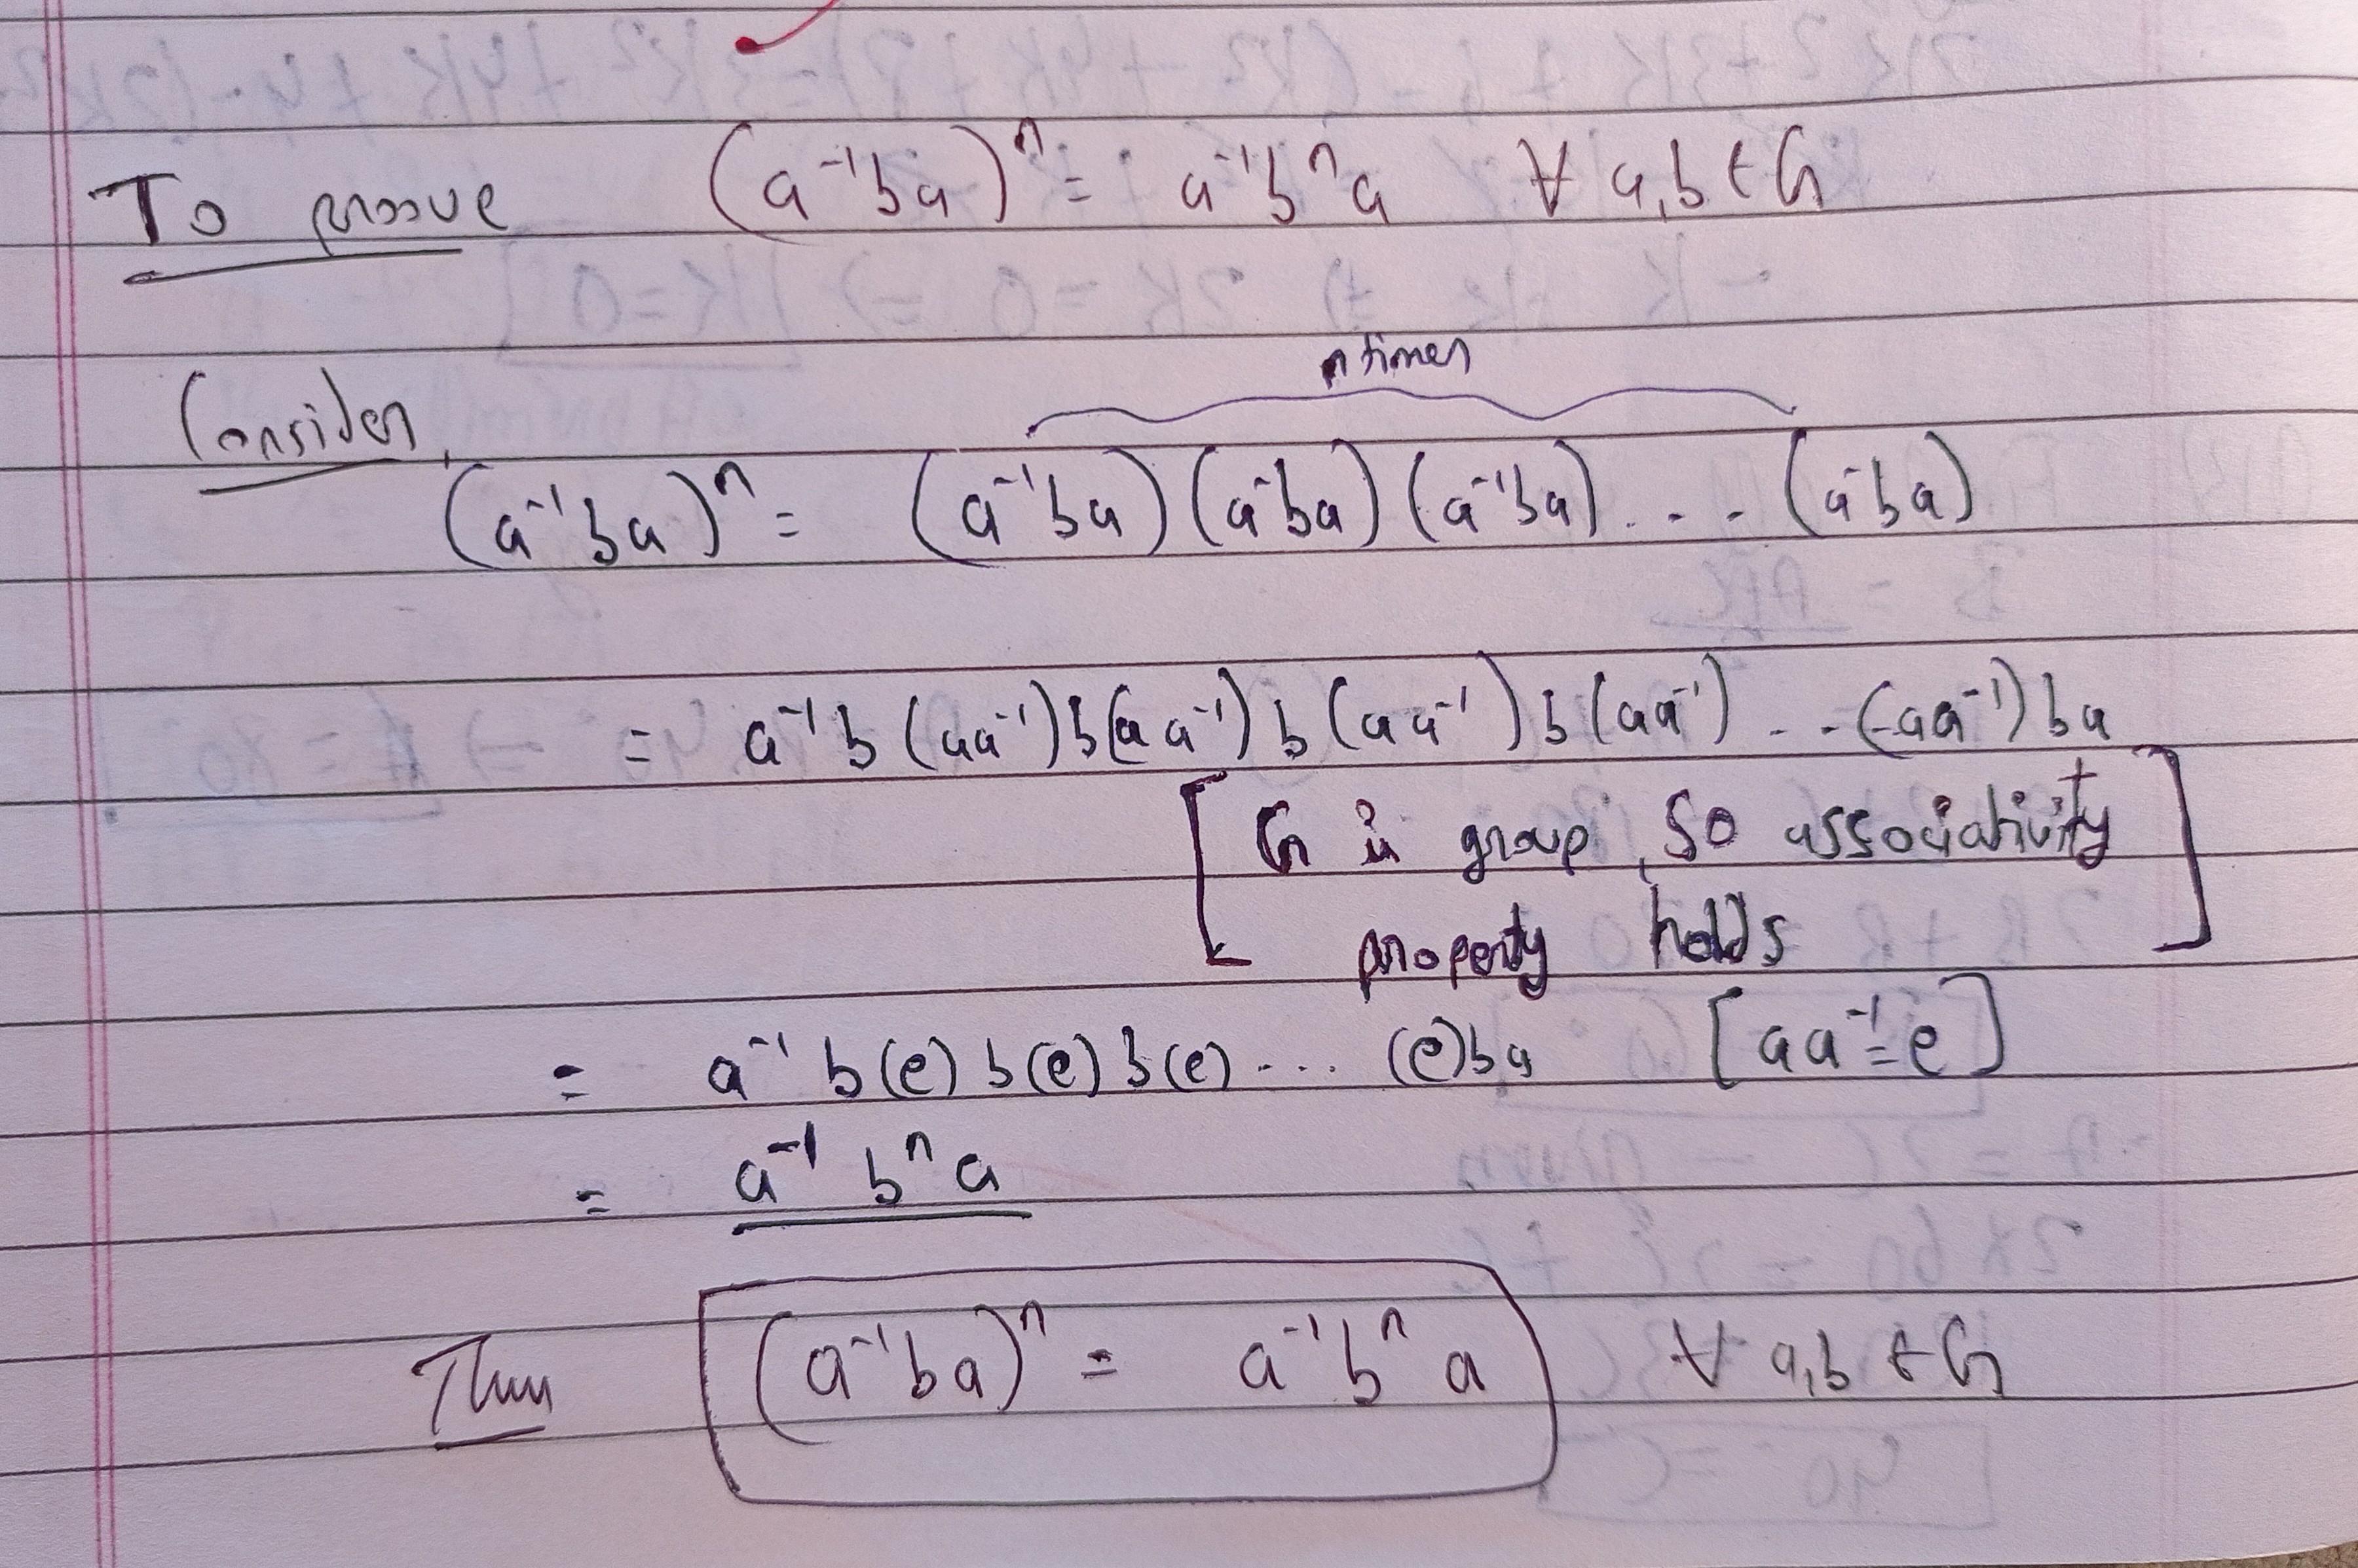 To proove (a⁻¹ba)ⁿ = a⁻¹bⁿa ∀ a,b ∈ G
n times
Consider,
(a⁻¹ba)ⁿ = (a⁻¹ba)(a⁻ba)(a⁻¹ba)...(a⁻ba)
= a⁻¹b(aa⁻¹)b(aa⁻¹)b(aa⁻¹)b(aa⁻¹)...(aa⁻¹)ba
[G is group, so associativity
property holds]
= a⁻¹b(e)b(e)b(e)...(e)ba [aa⁻¹=e]
= a⁻¹bⁿa
Thus (a⁻¹ba)ⁿ = a⁻¹bⁿa ∀ a,b ∈ G